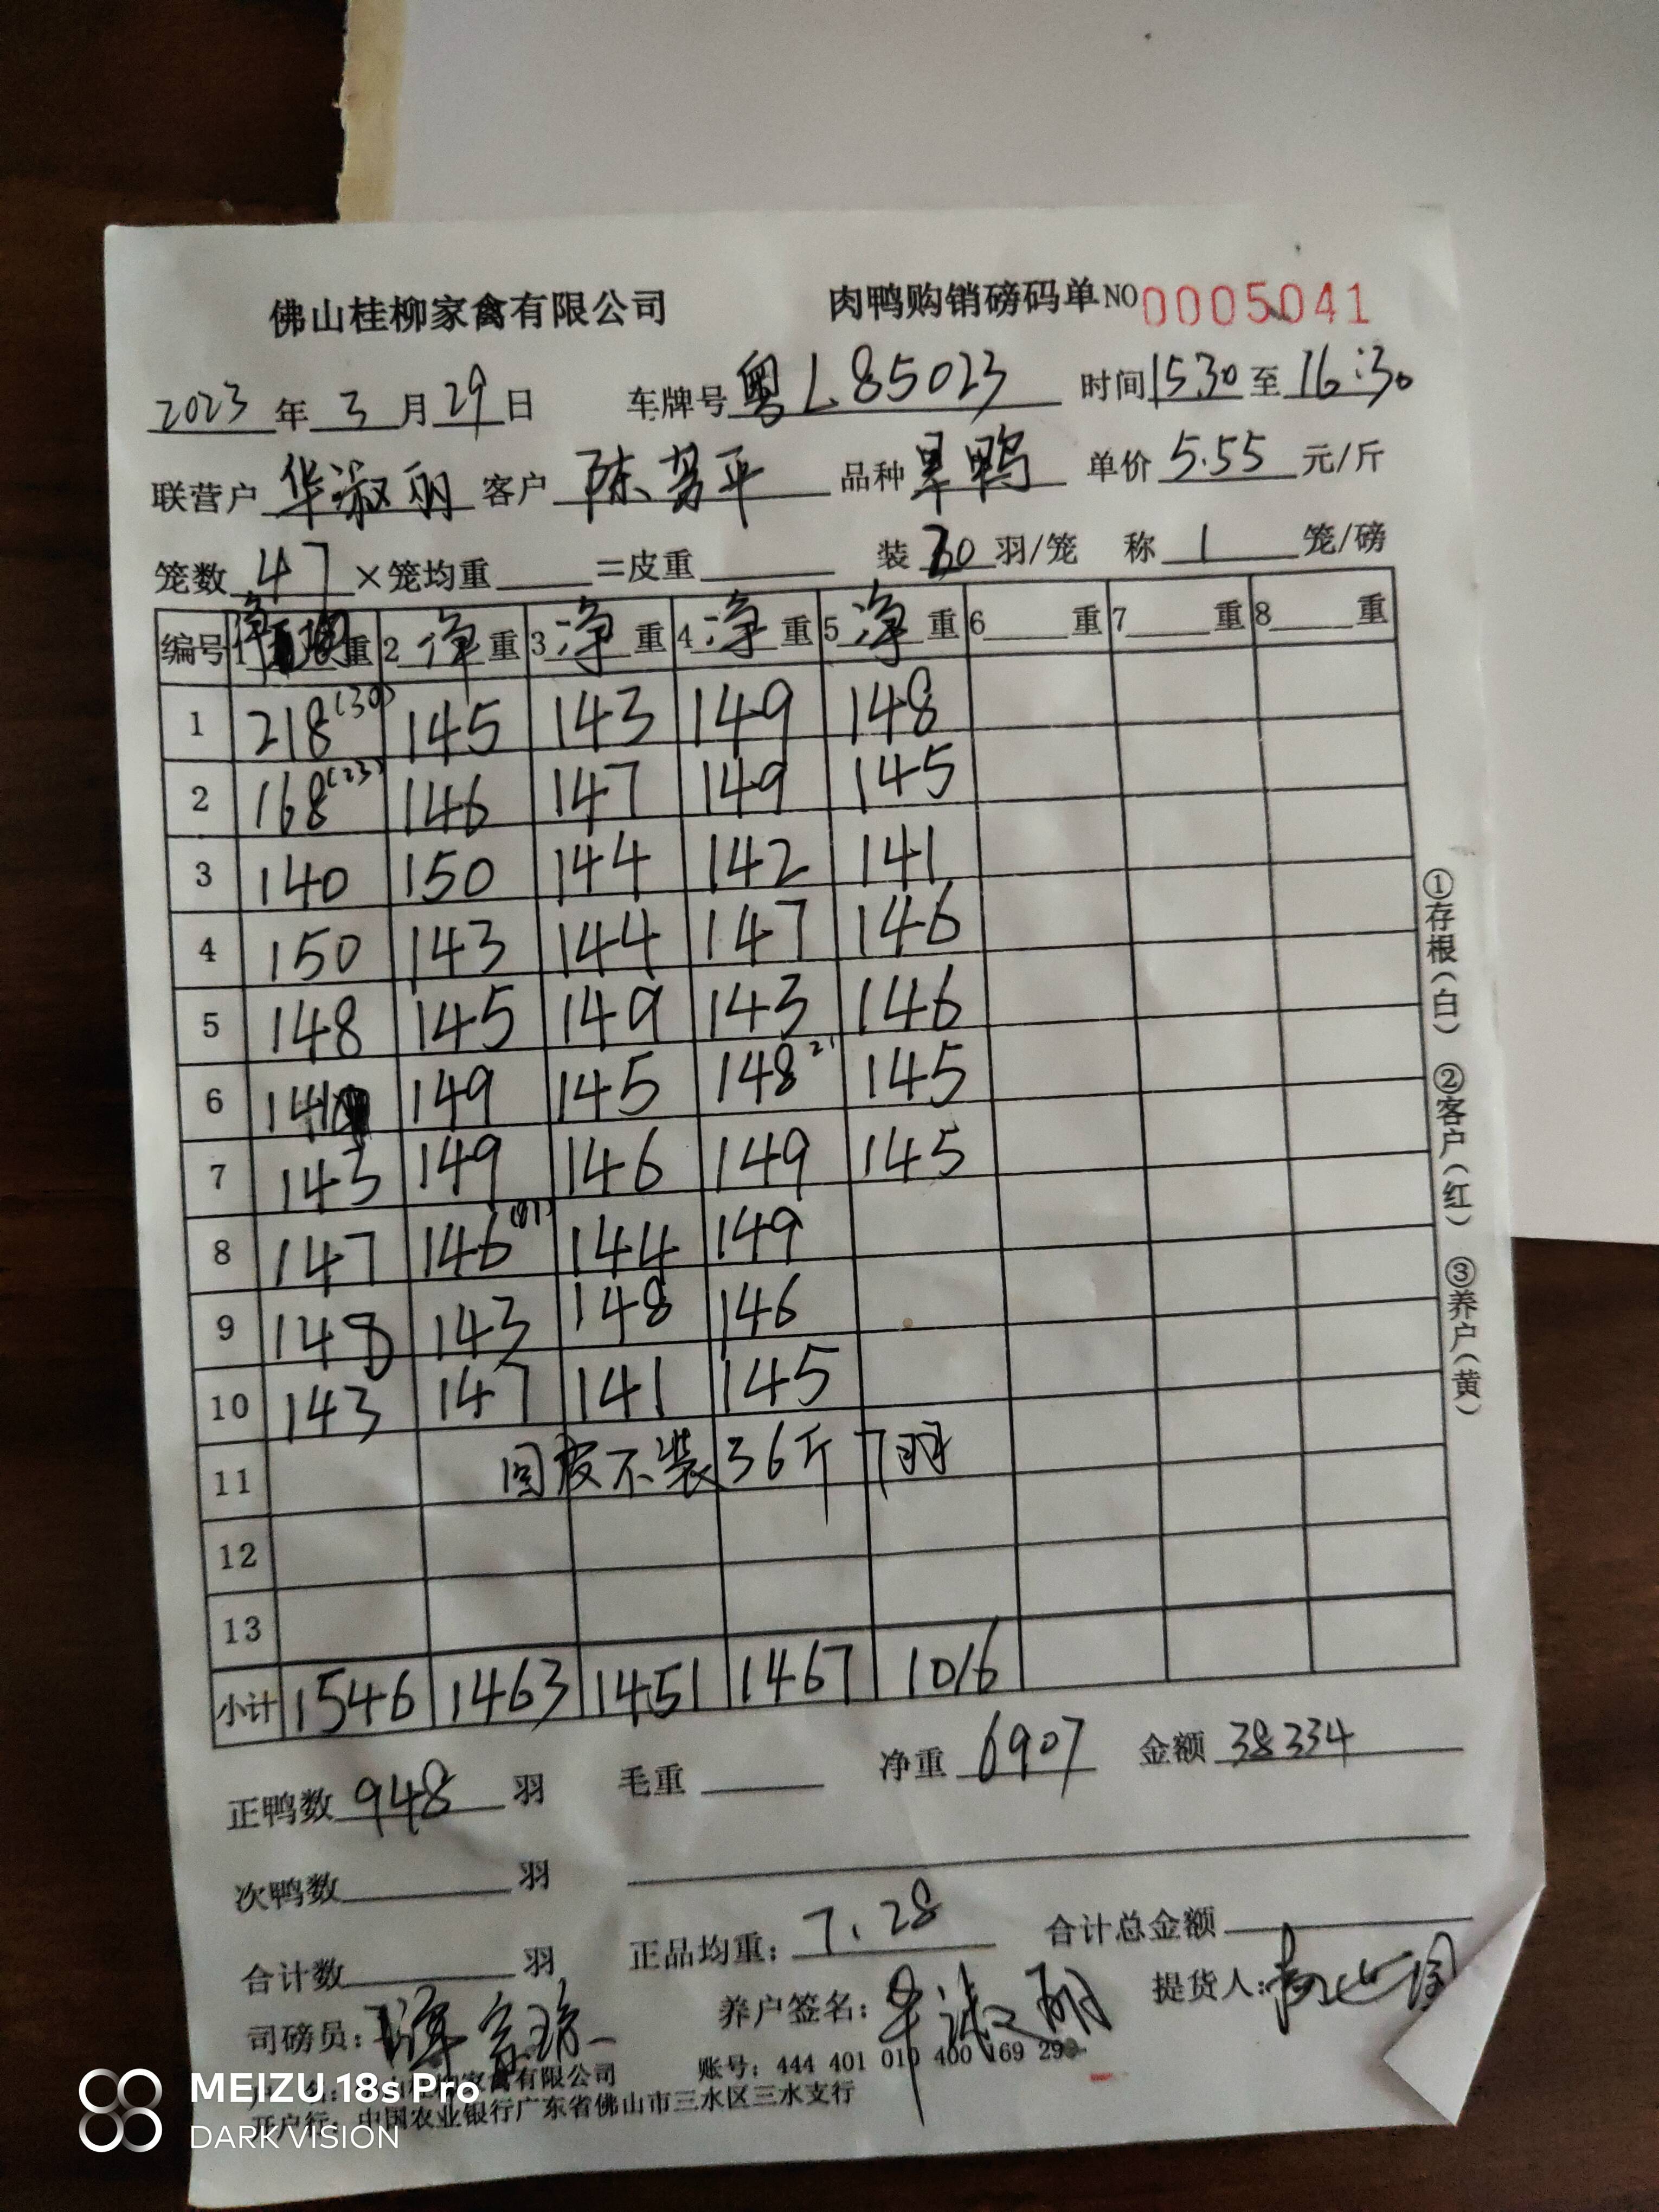 佛山桂柳家禽有限公司 肉鸭购销磅码单NO 0005041
2023年3月29日 车牌号 粤L85023 时间 1530 至 16:30
联营户 华淑丽 客户 陈 平 品种 旱鸭 单价 5.55 元/斤
笼数 47 ×笼均重 =皮重 装 20 羽/笼 称 1 笼/磅
编号 1 净 重 2 净 重 3 净 重 4 净 重 5 净 重 6 重 7 重 8 重
1 218(30) 145 143 149 148
2 168(23) 146 147 149 145
3 140 150 144 142 141
4 150 143 144 147 146
5 148 145 149 143 146
6 141 149 145 148 21 145
7 143 149 146 149 145
8 147 146 144 149
9 148 143 148 146
10 143 147 141 145
11 回皮不装36斤7羽
12
13
小计 1546 1463 1451 1467 1016
正鸭数 948 羽 毛重 净重 6907 金额 38334
次鸭数 羽
合计数 羽 正品均重: 7.28 合计总金额
司磅员: 养户签名: 华淑丽 提货人:
账号: 444 401 010 400 169 29
家禽有限公司
开户行: 中国农业银行广东省佛山市三水区三水支行
①存根(白) ②客户(红) ③养户(黄)
MEIZU 18s Pro
DARK VISION